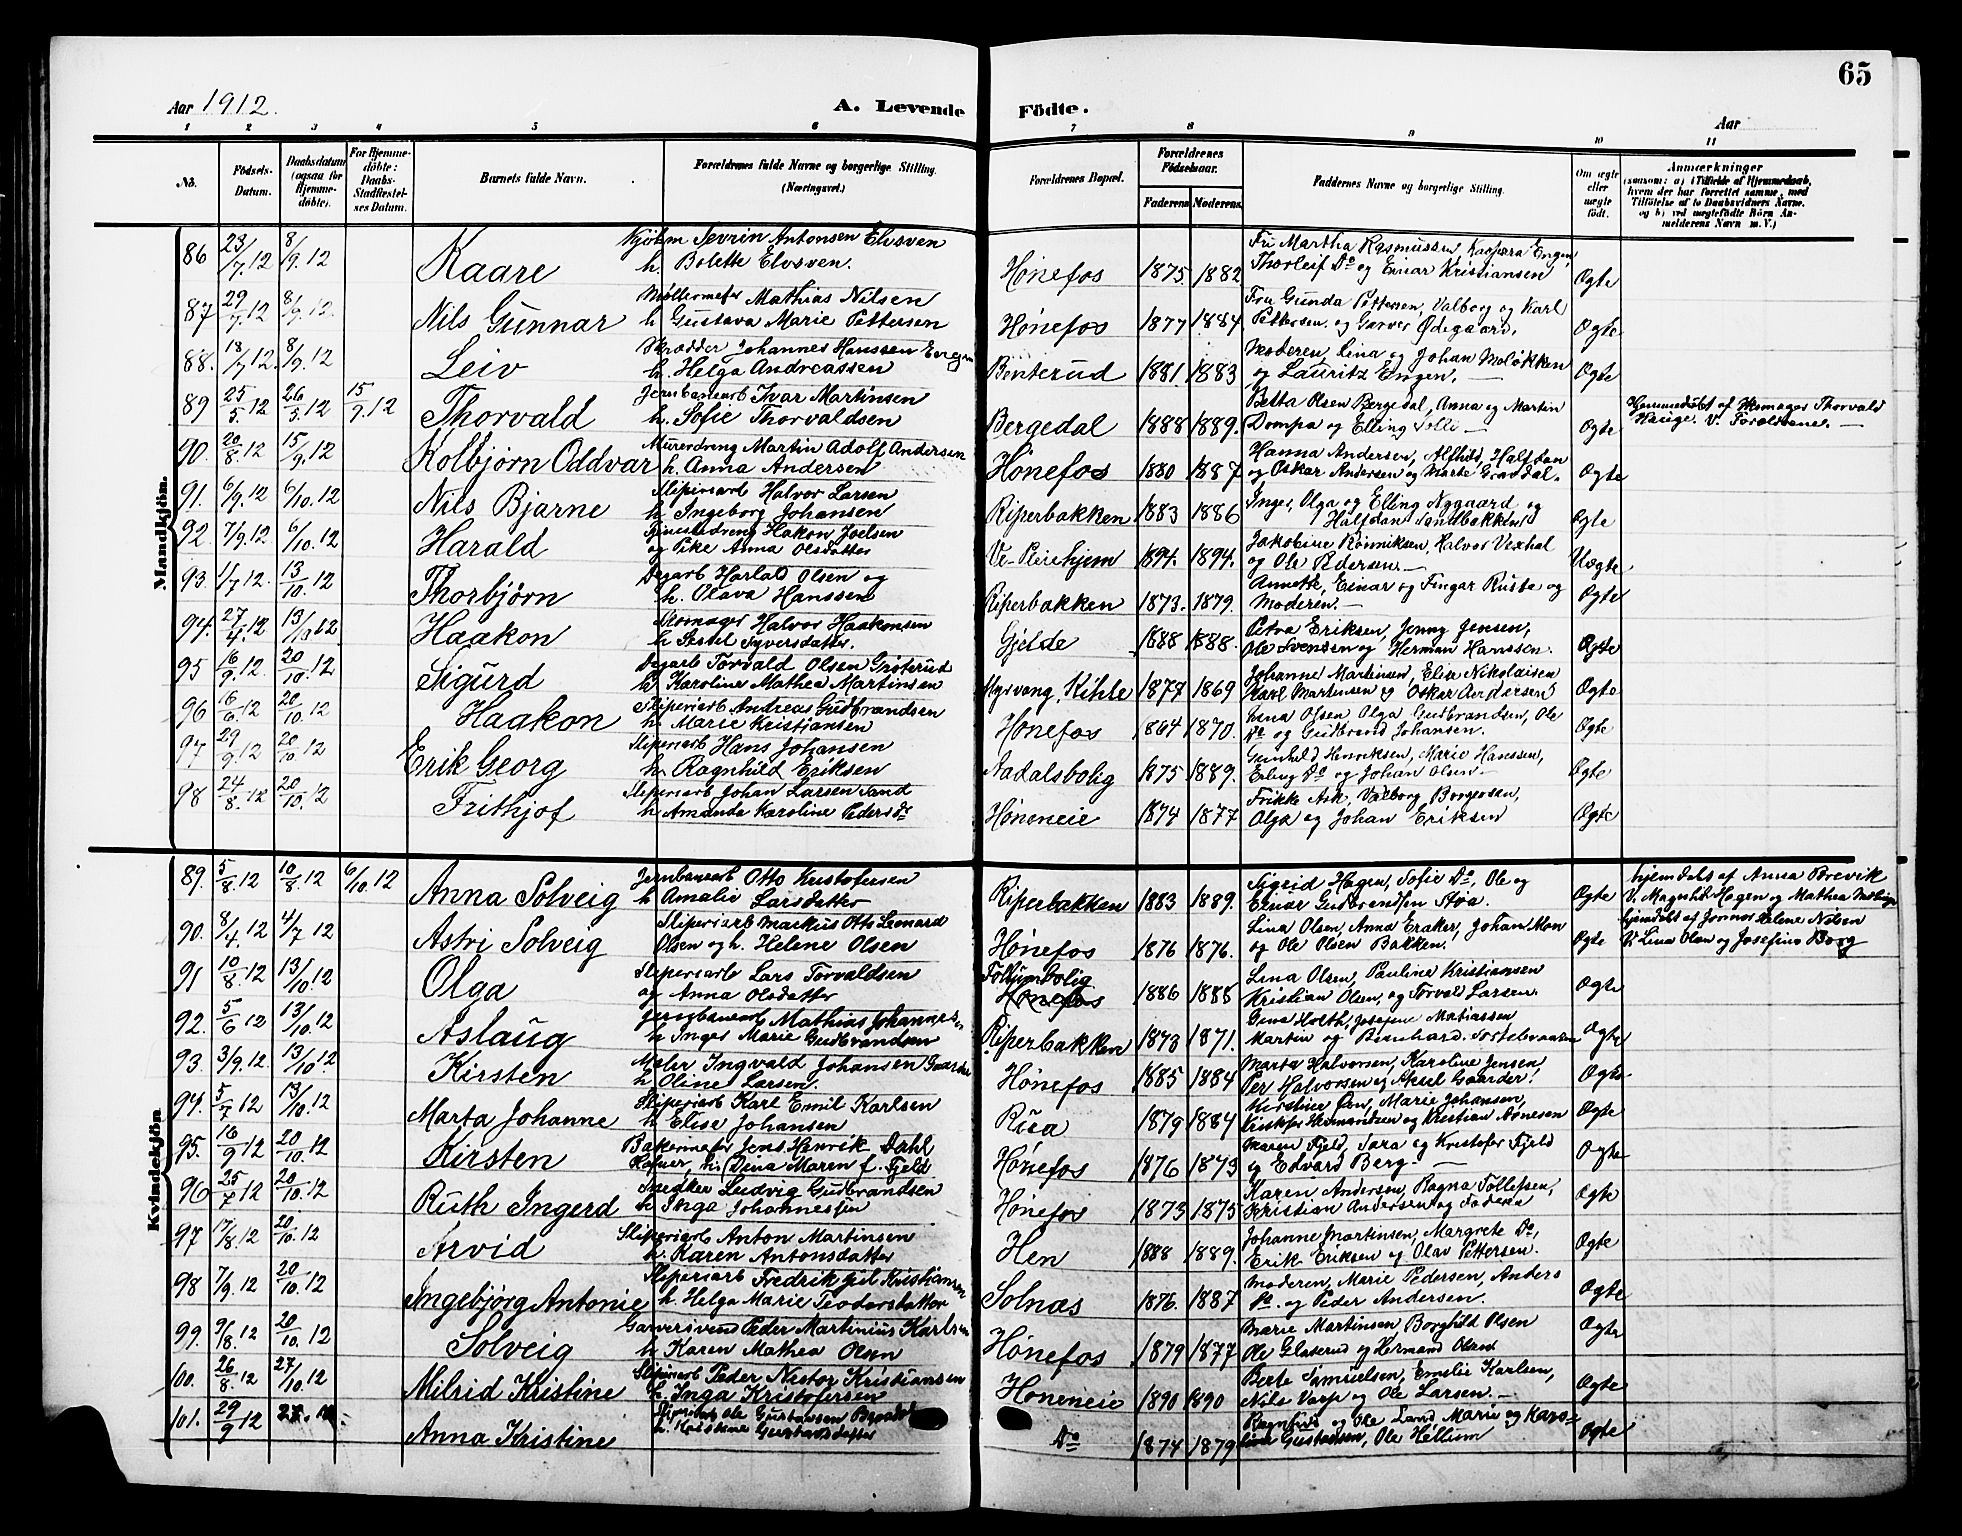 65
Aar 1912.
A. Levende Födte.
Aar
1 2 3 4 5 6 7 8 9 10 11
No. Födsels-Datum. Daabsdatum (ogsaa for Hjemme-döbte). For Hjemme-döbte: Daabs-Stadfæstel-ses Datum. Barnets fulde Navn. Forældrenes fulde Navne og borgerlige Stilling. (Næringsvei.) Forældrenes Bopæl. Forældrenes Födselsaar. Faderens Moderens. Faddernes Navne og borgerlige Stilling. Om ægte eller uægte födt. Anmærkninger
(saasom: a) i Tilfælde af Hjemmedaab, hvem der har forrettet samme, med Tilföielse af to Daabsvidners Navne. og b) ved uægtefödte Börn An-melderens Navn m. V.)
Mandkjön.
86 23/7.12 8/9.12 Kaare Sevrin Antonsen Elvsveen Hønefos 1875 1882 Fru Martha Rasmussen, Kaspara Engen, Ægte
h. Bolette Elvsveen. Thorleif Do og Einar Kristiansen
87 29/7.12 8/9.12 Nils Gunnar Møllermester Mathias Nilsen Hønefos 1877 1884 Fru Gunda Pettersen, Valborg og Karl Ægte
h. Gustava Marie Pettersen Pettersen og Garver Ødegaard.
88. 18/7.12. 8/9.12 Leiv Skrædder Johannes Hanssen Engen Benterud 1881 1883 Moderen, Lina og Johan Moløkken Ægte
h. Helga Andreassen og Lauritz Engen.
89 25/5.12 26/5.12 15/9.12 Thorvald Jernbanearb Ivar Martinsen Bergedal 1888 1889. Betta Olsen Bergedal, Anna og Martin Ægte Hjemmedøbt af Skomager Thorvald
h. Sofie Thorvaldsen Dompa og Elling Solli Hauge. V. Forældrene.
90. 20/8.12 15/9.12 Kolbjørn Oddvar Murerdreng Martin Adolf Andersen Hønefos 1880 1887 Hanna Andersen, Alfhild, Halfdan Ægte
h. Anna Andersen og Oskar Andersen og Marte Grandal.
91. 6/9.12 6/10.12 Nils Bjarne Sliperiarb Halvor Larsen Riperbakken 1883 1886 Inge, Olga og Elling Nygaard og Ægte
h. Ingeborg Johansen Halfdan Sandbakken
92. 7/9.12 6/10.12 Harald Tjenestedreng Hakon Joelsen Ve-Pleiehjem 1894. 1894. Jakobine Rønniksen, Halvor Vexhal Uægte
og Pike Anna Olsdatter og Ole Pedersen.
93. 1/7.12. 13/10.12 Thorbjørn Dagarb Harlad Olsen og Riperbakken 1873. 1879. Annette, Einar og Fingar Rusta og Ægte
h. Olava Hanssen Moderen.
94. 27/4.12 13/10.12 Haakon Skomager Halvor Haakonsen Gjelde 1888 1888. Petra Eriksen, Jenny Jensen, Ægte
h. Sesil Syversdatter. Ole Svensen og Herman Hanssen.
95 16/9.12. 20/10.12 Sigurd Dagarb Torvald Olsen Grøterud Myrvang, Kihle 1877 1869 Johanne Martinsen, Elise Nikolaisen Ægte
h. Karoline Mathea Martinsen Karl Martinsen og Oskar Andersen
96 16/6.12 20/10.12 Haakon Sliperiarb Andreas Gudbrandsen Hønefos 1864 1870. Lina Olsen Olga Gudbrandsen, Ole Ægte
h. Marie Kristiansen Do og Gudbrand Johansen.
97 29/9.12 20/10.12 Erik Georg Sliperiarb Hans Johansen Aadalsbolig 1875 1889. Gunhild Henriksen, Marie Hanssen, Ægte
h. Ragnhild Eriksen Erling Do og Johan Olsen
98 24/8.12 20/10.12 Frithjof Sliperiarb Johan Larsen Sand Høneneie 1874 1877 Frikke Ask, Valborg Borgersen, Ægte
h. Amanda Karoline Pedersdr Olga og Johan Eriksen
Kvindekjön
89. 5/8.12 10/8.12 6/10.12 Anna Solveig Jernbanearb Otto Kristofersen Riperbakken 1883 1889. Sigrid Hagen, Sofie Do, Ole og Ægte hjemdøbt af Anna Brevik
h. Amalie Larsdatter Einar Gudbrandsen Stva. V. Magnhild Hagen og Mathea
90. 8/4.12 4/7 12 Astri Solveig Sliperiarb Markus Otto Leonard Hønefos 1876 1876. Lina Olsen, Anna Eraker, Johan Moen Ægte hjemdøbt af Jormor Helene Nilsen
Olsen og h. Helene Olsen og Ole Olsen Bakken. V. Lina Olsen og Josefine Borg
91 10/8.12 13/10.12 Olga Sliperiarb Lars Torvaldsen Follumbolig 1886 1888 Lina Olsen, Pauline Kristiansen Ægte
og Anna Olsdatter Hønefos Kristian Olsen, og Torvald Larsen.
92. 5/6 12 13/10.12 Aslaug Jernbanearb Mathias Johannesen Riperbakken 1873 1871. Gina Holth, Josefine Matiassen Ægte
h. Inger Marie Gudbrandsen Martin og Bernhard
93. 3/9.12. 13/10 12 Kirsten Maler Ingvald Johansen Gaarder Hønefos 1885 1884 Marta Halvorsen, Karoline Jensen, Ægte
h. Oline Larsen. Per Halvorsen og Aksel Gaarder.
94. 5/7.12 13/10.12 Marta Johanne Sliperiarb Karl Emil Karlsen Rua 1879 1884 Kirstine Øen, Marie Johansen, Ægte
h. Elise Johansen Kristofer Hermandsen og Kristian Arnesen
95. 16/9.12 20/10.12 Kirsten Bakermester Jens Henrik Dahl Hønefos 1876 1873 Maren Fjeld, Sara og Kristofer Fjeld Ægte
Hafner, h. Dina Maren f. Fjeld og Edvard Berg.
96 25/7.12 20/10.12 Ruth Ingerd Snedker Ludvig Gudbrandsen Hønefos 1873 1875 Karen Andersen, Ragna Tollefsen, Ægte
h Inga Johannessen Kristian Andersen og Faderen
97 17/8.12 20/10.12 Arvid Sliperiarb Anton Martinsen Hen 1888 1889. Johanne Martinsen, Margrete Do, Ægte
h. Karen Antonsdatter Erik Eriksen og Olav Pettersen.
98 7/9.12 20/10.12 Ingebjørg Antonie Sliperiarb Fredrik Kristiansen Solnæs 1876. 1887 Moderen, Marie Pedersen, Anders Ægte
h. Helga Marie Teodorsdatter Do. og Peder Andersen.
99. 9/8.12 20/10.12 Solveig Garversvend Peder Martinius Karlsen Hønefos 1879 1877 Marie Martinsen Borghild Olsen Ægte
h Karen Mathea Olsen Ole Glaserud og Herman Olsen
100. 26/8.12 27/10 12 Milrid Kristine Sliperiarb Peder Nestor Kristiansen Høneneie 1890 1890 Berte Samuelsen, Emelie Karlsen, Ægte
h. Inga Kristofersen Nils Varp og Ole Larsen.
101. 29/9 12 27. Anna Kristine Sliperiarb Ole Gustavsen Do 1874 1879 Ragnhild og Ole Land, Marie og Karo= Ægte
h. Kristine Gustavsdatter line Gustavsen, Ole Hellum